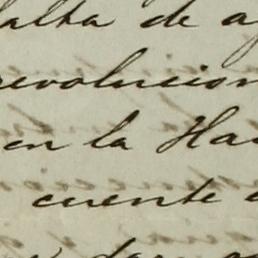 alta de a
revolucion
en la Ha
cuente